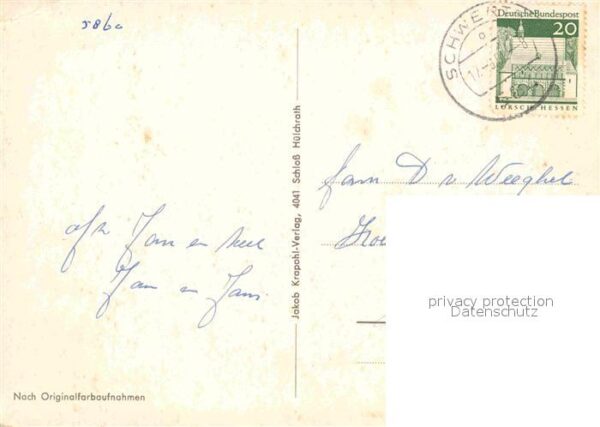 586c
Deutsche Bundespost
20
LORSCH · HESSEN
SCHWE
Jakob Krapohl-Verlag, 4041 Schloß Hülchrath
Fam D v Weeghel
afz Jan en
Jan en Jans
privacy protection
Datenschutz
Nach Originalfarbaufnahmen